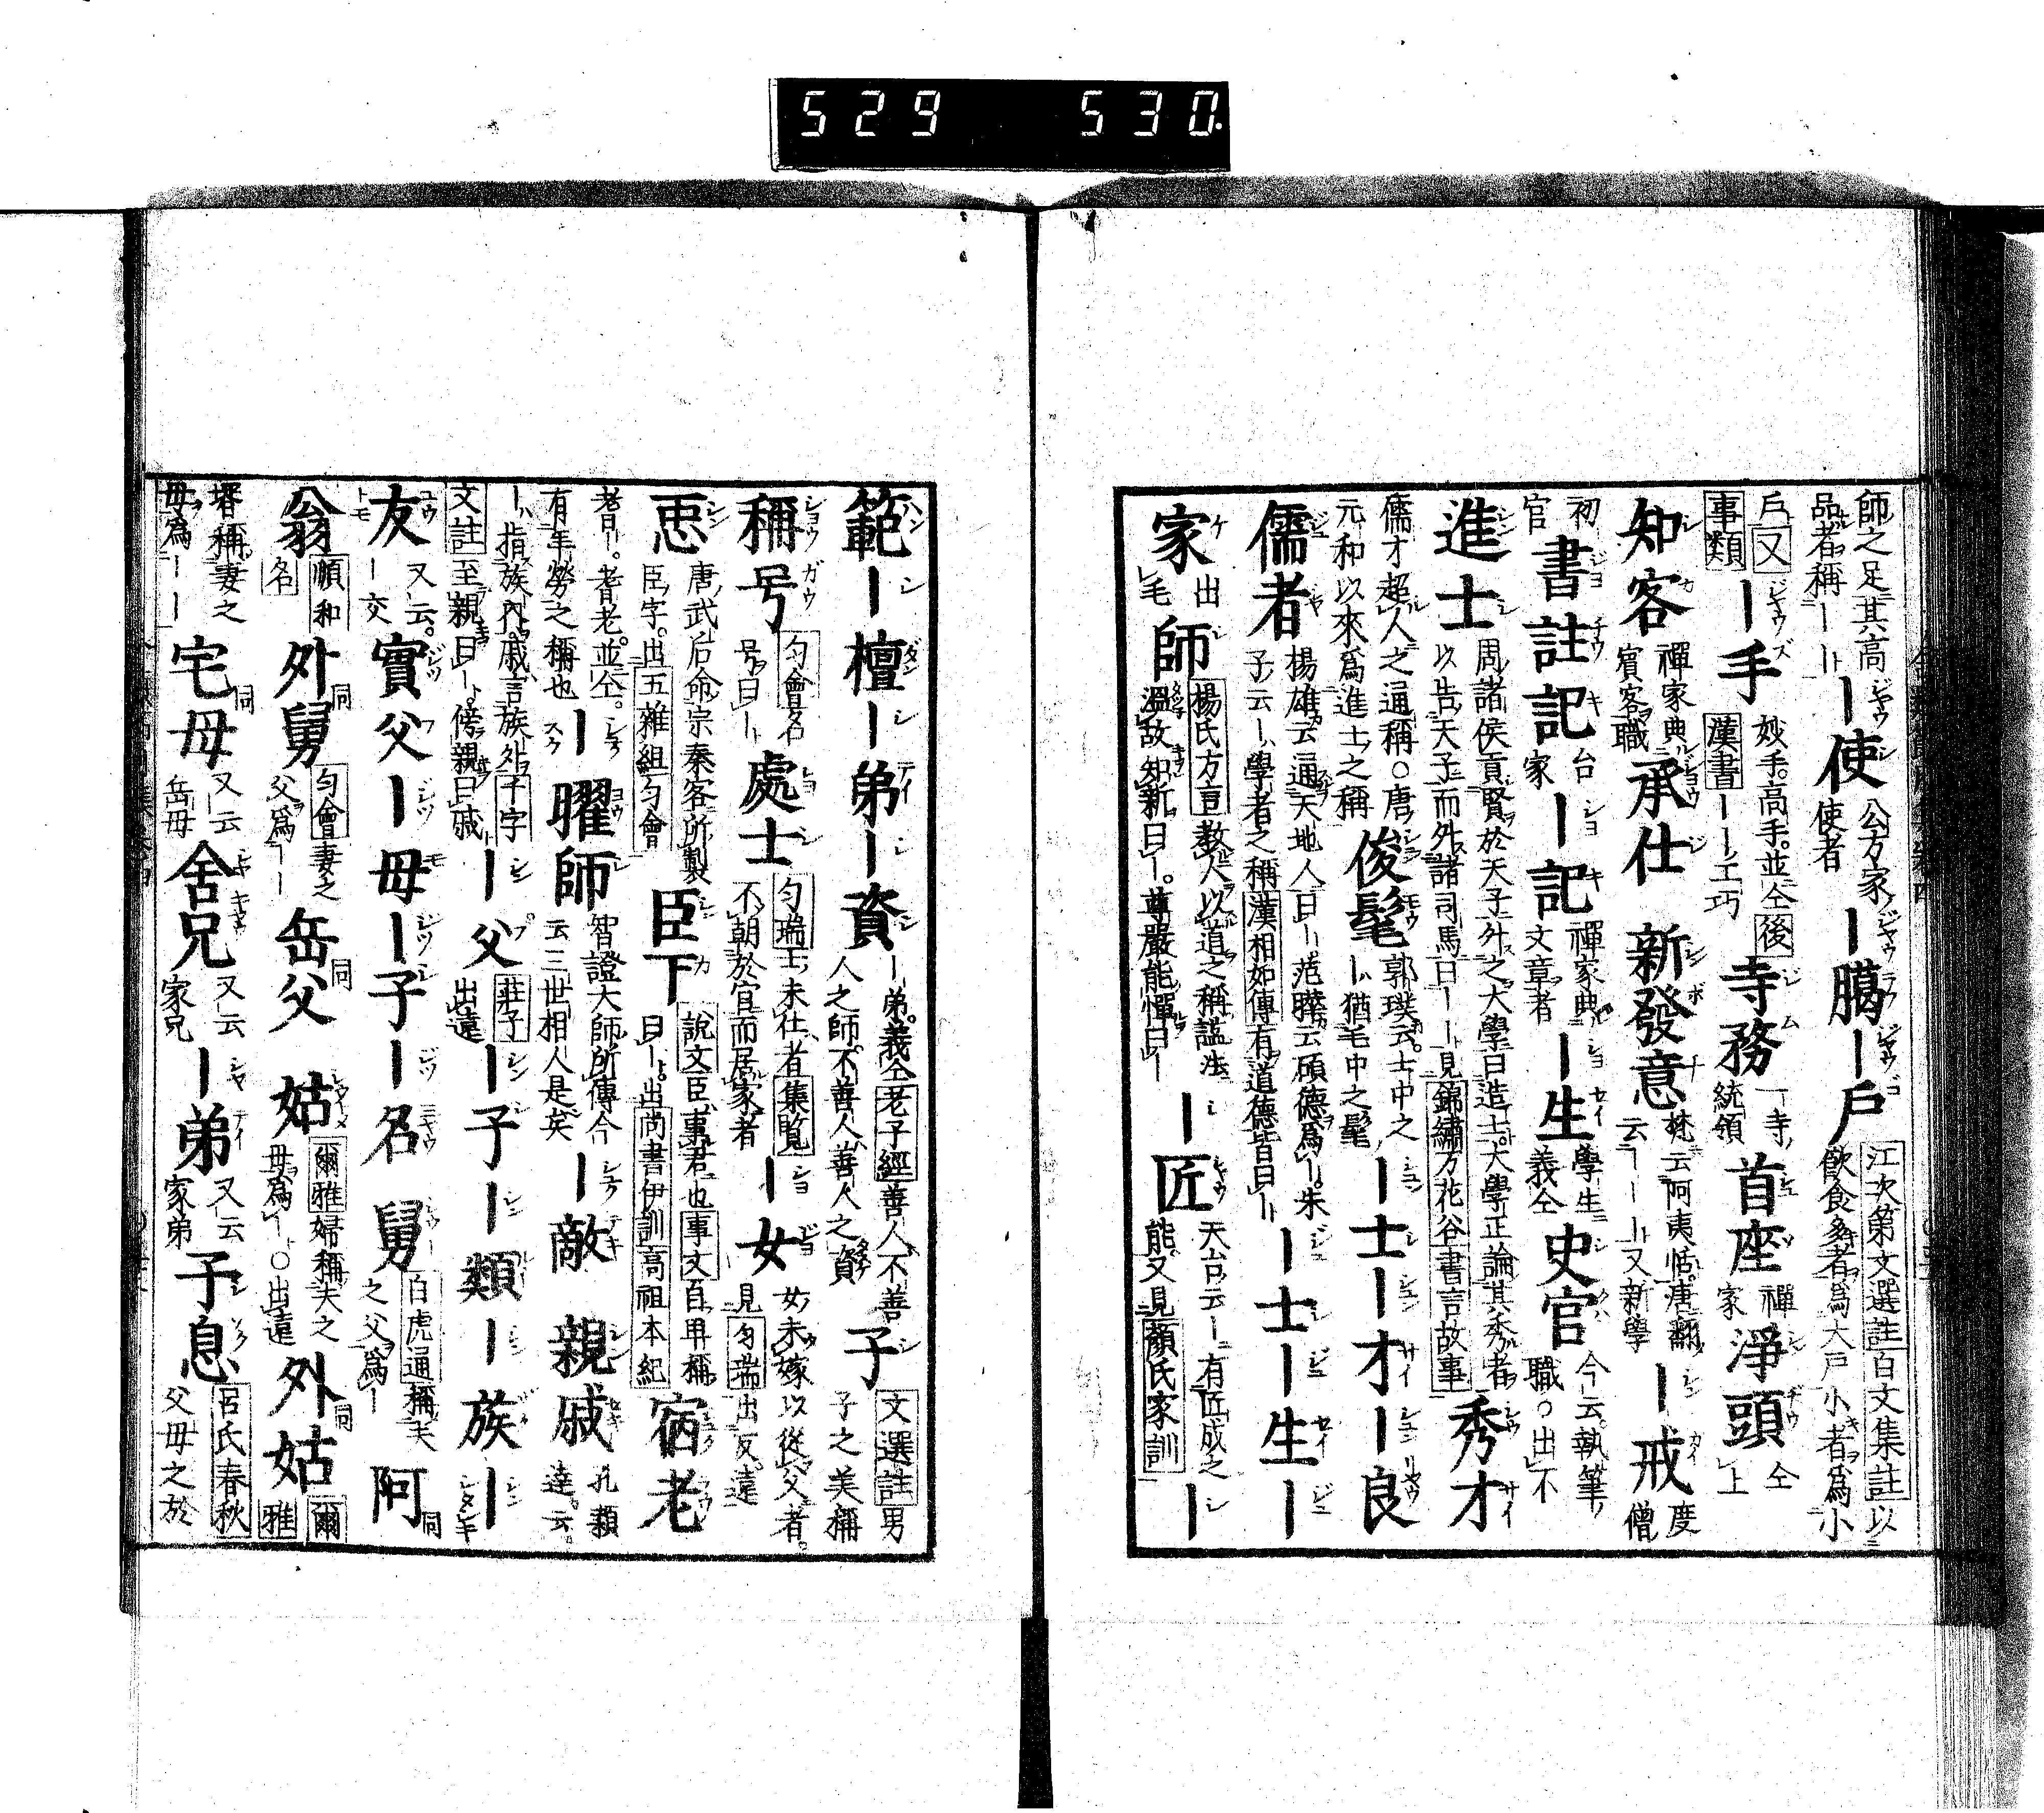 529 530.
師之足其高品者稱ーー ー使 公方家使者 ー﨟 ー戶 江次第文選註白文集註以飮食多者爲大戶小者爲小
戶 又事類 ー手 妙手。高手。並仝後漢書ーー工巧 寺務 一寺統領 首座 禪家 淨頭 仝上
知客 禪家典賓客職 承仕 新發意 梵云阿夷恬。唐翻云ーーー又新學 ー戒 度僧
初官 書註記 台家 ー記 禪家典文章者 ー生 學生義仝 史官 今云執筆職。○出不
進士 周諸侯貢賢於天子外之大學曰造士。大學正論其秀者以告天子而外諸司馬曰ーー見錦繡万花谷書言故事 秀才
儒才超人之通稱。○唐元和以來爲進士之稱 俊髦 郭璞云。士中之ー猶毛中之髦 ー士 ー才 ー良
儒者 楊雄云通天地人曰ー范曄云碩德爲ー。朱子云ー學者之稱漢相如傳有道德皆曰ー ー士 ー生 ー
家 出毛 師 楊氏方言敎人以道之稱諡法溫故知新曰ー。尊嚴能憚曰ー ー匠 天台云ー有匠成之能又見顏氏家訓 ー
範 ー檀 ー弟 ー資 ー弟。義仝老子經善人不善人之師。不善人善人之資 子 文選註男子之美稱
稱号 匀會名号曰ー 處士 匀瑞士未仕者集覧不朝於官而居家者 ー女 女未嫁以從父者。見匀瑞出反。遠
恧 唐武后命宗秦客所製臣字。出五雜組匀會 臣下 說文臣事君也事文自畀稱曰ー。出尚書伊訓高祖本紀 宿老
耆曰ー。耆老。並仝。有年勞之稱也 ー曜師 智證大師所傳今云三世相人是矣 ー敵 親戚 孔穎達云。
ー指族內。戚言族外千字文註至親曰ー。傍親曰戚 ー父 莊子出遠 ー子 ー類 ー族 ー
友 又云。ー交 實父 ー母 ー子 ー名 舅 白虎通稱夫之父爲ー 阿
翁 順和名 外舅 匀會妻之父爲ーー 岳父 姑 爾雅婦稱夫之母爲ー。○出遠 外姑 爾雅
壻稱妻之母爲ーー 宅母 又云岳母 舍兄 又云家兄 ー弟 又云家弟 子息 呂氏春秋父母之於